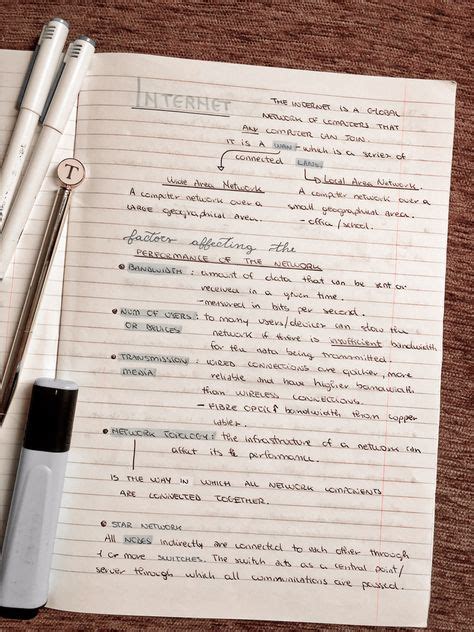 INTERNET
THE INTERNET IS A GLOBAL
NETWORK OF COMPUTERS THAT
ANY COMPUTER CAN JOIN.
IT IS A WAN - which is a series of
connected LANs.
Wide Area Network
A computer network over a
LARGE geographical area.
Local Area Network.
A computer network over a
small geographical area.
- office / school.
factors affecting the
PERFORMANCE OF THE NETWORK
BANDWIDTH : amount of data that can be sent or
received in a given time.
- measured in bits per second.
NUM OF USERS : to many users/devices can slow the
OR DEVICES network if there is insufficient bandwidth
for the data being transmitted.
TRANSMISSION : WIRED CONNECTIONS are quicker, more
MEDIA reliable and have higher bandwidth
than WIRELESS CONNECTIONS.
- FIBRE OPTIC ↑ bandwidth than copper
cables.
NETWORK TOPOLOGY : the infrastructure of a network can
affect its performance.
IS THE WAY IN WHICH ALL NETWORK COMPONENTS
ARE CONNECTED TOGETHER.
STAR NETWORK
All NODES indirectly are connected to each other through
1 or more SWITCHES. The switch acts as a central point/
server through which all communications are passed.
T